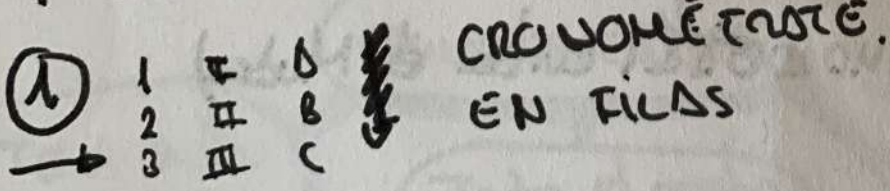 ① 1 I A CRONOMÉTRATE.
2 II B EN FILAS
→ 3 III C